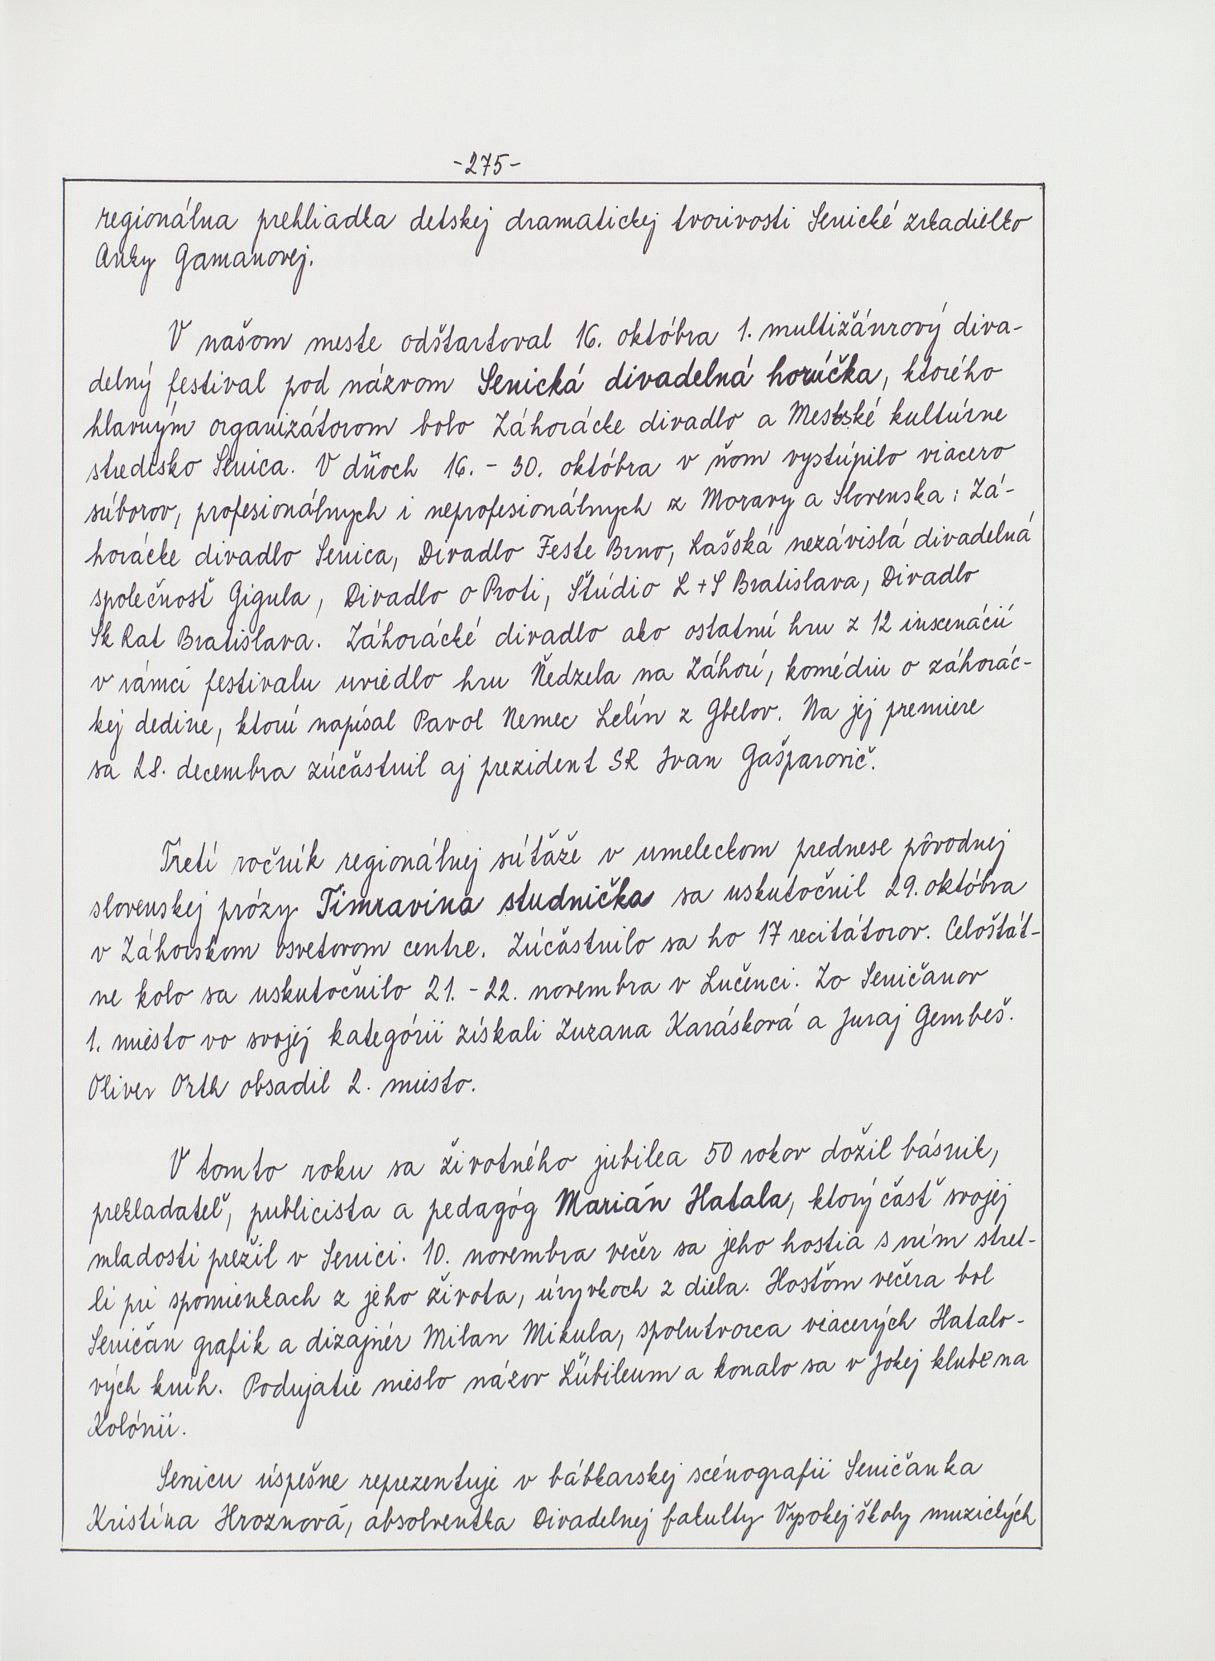 -275-
regionálna prehliadka detskej dramatickej tvorivosti Senické zrkadielko
Anky Gamanovej.
V našom meste odštartoval 16. októbra 1. multižánrový diva-
delný festival pod názvom Senická divadelná horúčka, ktorého
hlavným organizátorom bolo Záhorácke divadlo a Mestské kultúrne
stredisko Senica. V dňoch 16. - 30. októbra v ňom vystúpilo viacero
súborov, profesionálnych i neprofesionálnych z Moravy a Slovenska: Zá-
horácke divadlo Senica, Divadlo Feste Brno, Lašská nezávislá divadelná
společnosť Gigula, Divadlo o Proti, Štúdio L+S Bratislava, Divadlo
SkRat Bratislava. Záhorácké divadlo ako ostatnú hru z 12 inscenácií
v rámci festivalu uviedlo hru Ňedzela na Záhorí, komédiu o záhorác-
kej dedine, ktorú napísal Pavol Nemec Lelín z Gbelov. Na jej premiere
sa 28. decembra zúčastnil aj prezident SR Ivan Gašparovič.
Tretí ročník regionálnej súťaže v umeleckom prednese pôvodnej
slovenskej prózy Timravina studnička sa uskutočnil 29. októbra
v Záhorskom osvetovom centre. Zúčastnilo sa ho 17 recitátorov. Celoštát-
ne kolo sa uskutočnilo 21. - 22. novembra v Lučenci. Zo Seničanov
1. miesto vo svojej kategórii získali Zuzana Karásková a Juraj Gembeš.
Oliver Orth obsadil 2. miesto.
V tomto roku sa životného jubilea 50 rokov dožil básnik,
prekladateľ, publicista a pedagóg Marián Hatala, ktorý časť svojej
mladosti prežil v Senici. 10. novembra večer sa jeho hostia s ním stret-
li pri spomienkach z jeho života, úryvkoch z diela. Hosťom večera bol
Seničan grafik a dizajnér Milan Mikula, spolutvorca viacerých Hatalo-
vých kníh. Podujatie nieslo názov Ľúbileum a konalo sa v Jokej klube na
Kolónii.
Senicu úspešne reprezentuje v bábkarskej scénografii Seničanka
Kristína Hroznová, absolventka Divadelnej fakulty Vysokej školy muzických